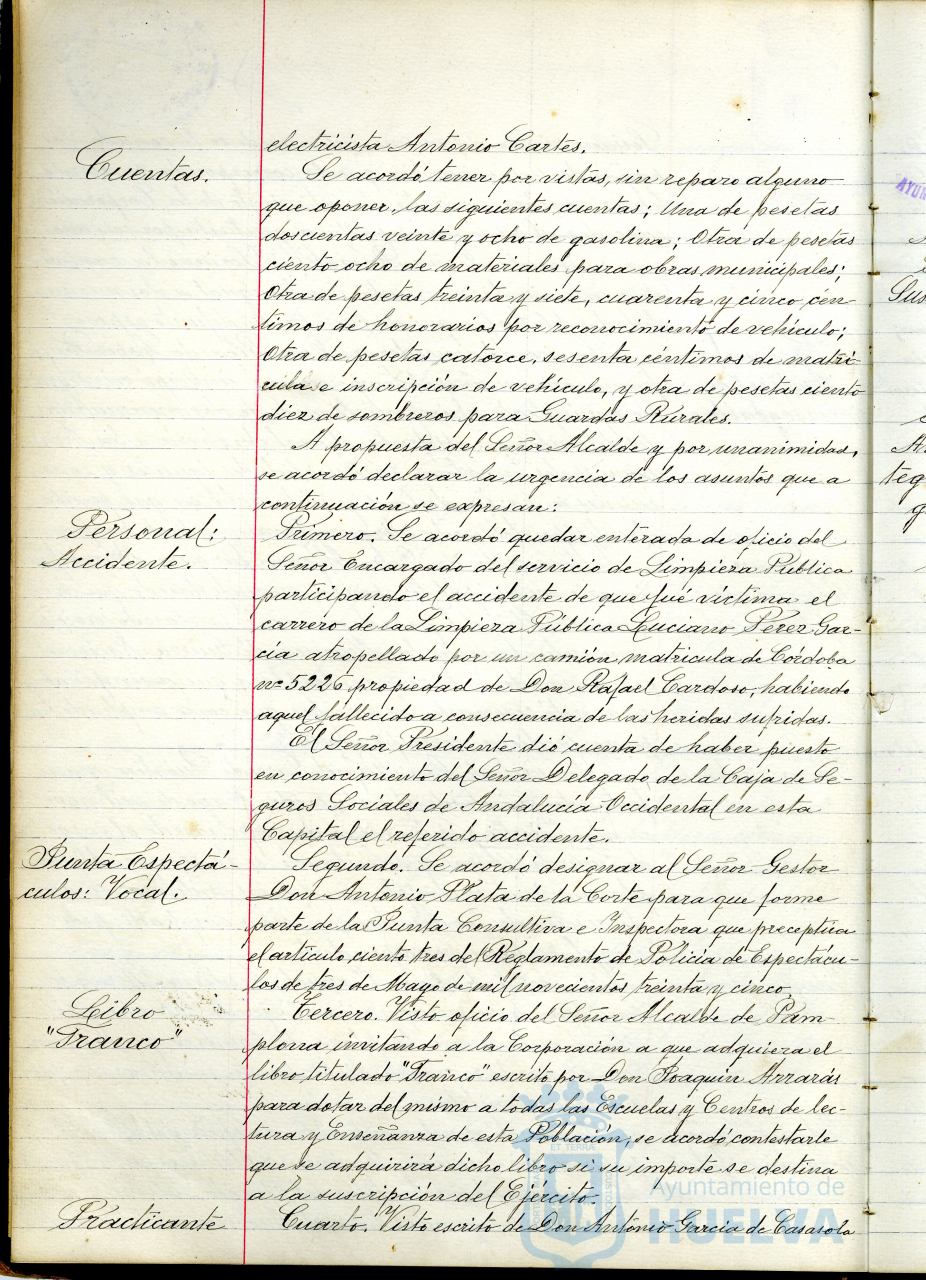 electricista Antonio Cartes.
Cuentas.
Se acordó tener por vistas, sin reparo alguno
que oponer, las siguientes cuentas; Una de pesetas
doscientas veinte y ocho de gasolina; Otra de pesetas
ciento ocho de materiales para obras municipales;
Otra de pesetas treinta y siete, cuarenta y cinco cén-
timos de honorarios por reconocimiento de vehículo;
Otra de pesetas catorce, sesenta céntimos de matrí-
cula e inscripción de vehículo, y otra de pesetas ciento
diez de sombreros para Guardas Rurales.
A propuesta del Señor Alcalde y por unanimidad,
se acordó declarar la urgencia de los asuntos que a
continuación se expresan:
Personal:
Accidente.
Primero. Se acordó quedar enterada de oficio del
Señor Encargado del servicio de Limpieza Publica
participando el accidente de que fué víctima el
carrero de la Limpieza Pública Luciano Pérez Gar-
cía atropellado por un camión matricula de Córdoba
nº 5226 propiedad de Don Rafael Cardoso, habiendo
aquel fallecido a consecuencia de las heridas sufridas.
El Señor Presidente dió cuenta de haber puesto
en conocimiento del Señor Delegado de la Caja de Se-
guros Sociales de Andalucía Occidental en esta
Capital el referido accidente.
Junta Espectá-
culos: Vocal.
Segundo. Se acordó designar al Señor Gestor
Don Antonio Plata de la Corte para que forme
parte de la Junta Consultiva e Inspectora que preceptúa
el artículo ciento tres del Reglamento de Policía de Espectácu-
los de tres de Mayo de mil novecientos treinta y cinco.
Libro
"Franco"
Tercero. Visto oficio del Señor Alcalde de Pam-
plona invitando a la Corporación a que adquiera el
libro titulado "Franco" escrito por Don Joaquín Arrarás
para dotar del mismo a todas las Escuelas y Centros de lec-
tura y Enseñanza de esta Población, se acordó contestarle
que se adquirirá dicho libro si su importe se destina
a la suscripción del Ejército.
Practicante
Cuarto. Visto escrito de Don Antonio García de Casasola
Ayuntamiento de
HUELVA